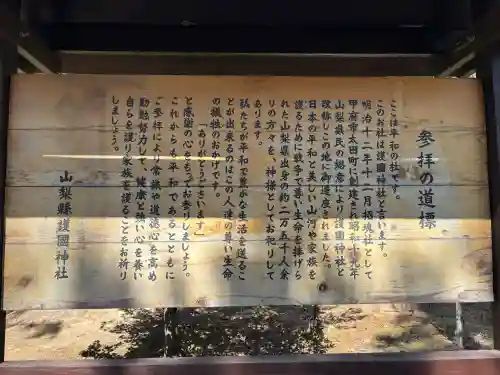 参拝の道標
ここは平和の社です。
このお社は護國神社と言います。
明治十二年十二月招魂社として
甲府市太田町に創建され昭和十九年
山梨県民の総意により護国神社と
改称しこの地に御遷座されました。
日本の平和と美しい山河や家族を
護るために戦争で尊い生命を捧げら
れた山梨県出身の約二万五千人余
りの方々を、神様としてお祀りして
あります。
私たちが平和で豊かな生活を送るこ
とが出来るのはこの人達の尊い生命
の犠牲のおかげです。
「ありがとうございます」
と感謝の心をもってお参りしましょう。
これからも平和であるとともに
ご参拝により常識や道徳心を高め
勤勉努力して、健康と強い心を養い
自らを護り家族を護ることをお祈り
しましょう。
山梨縣護國神社